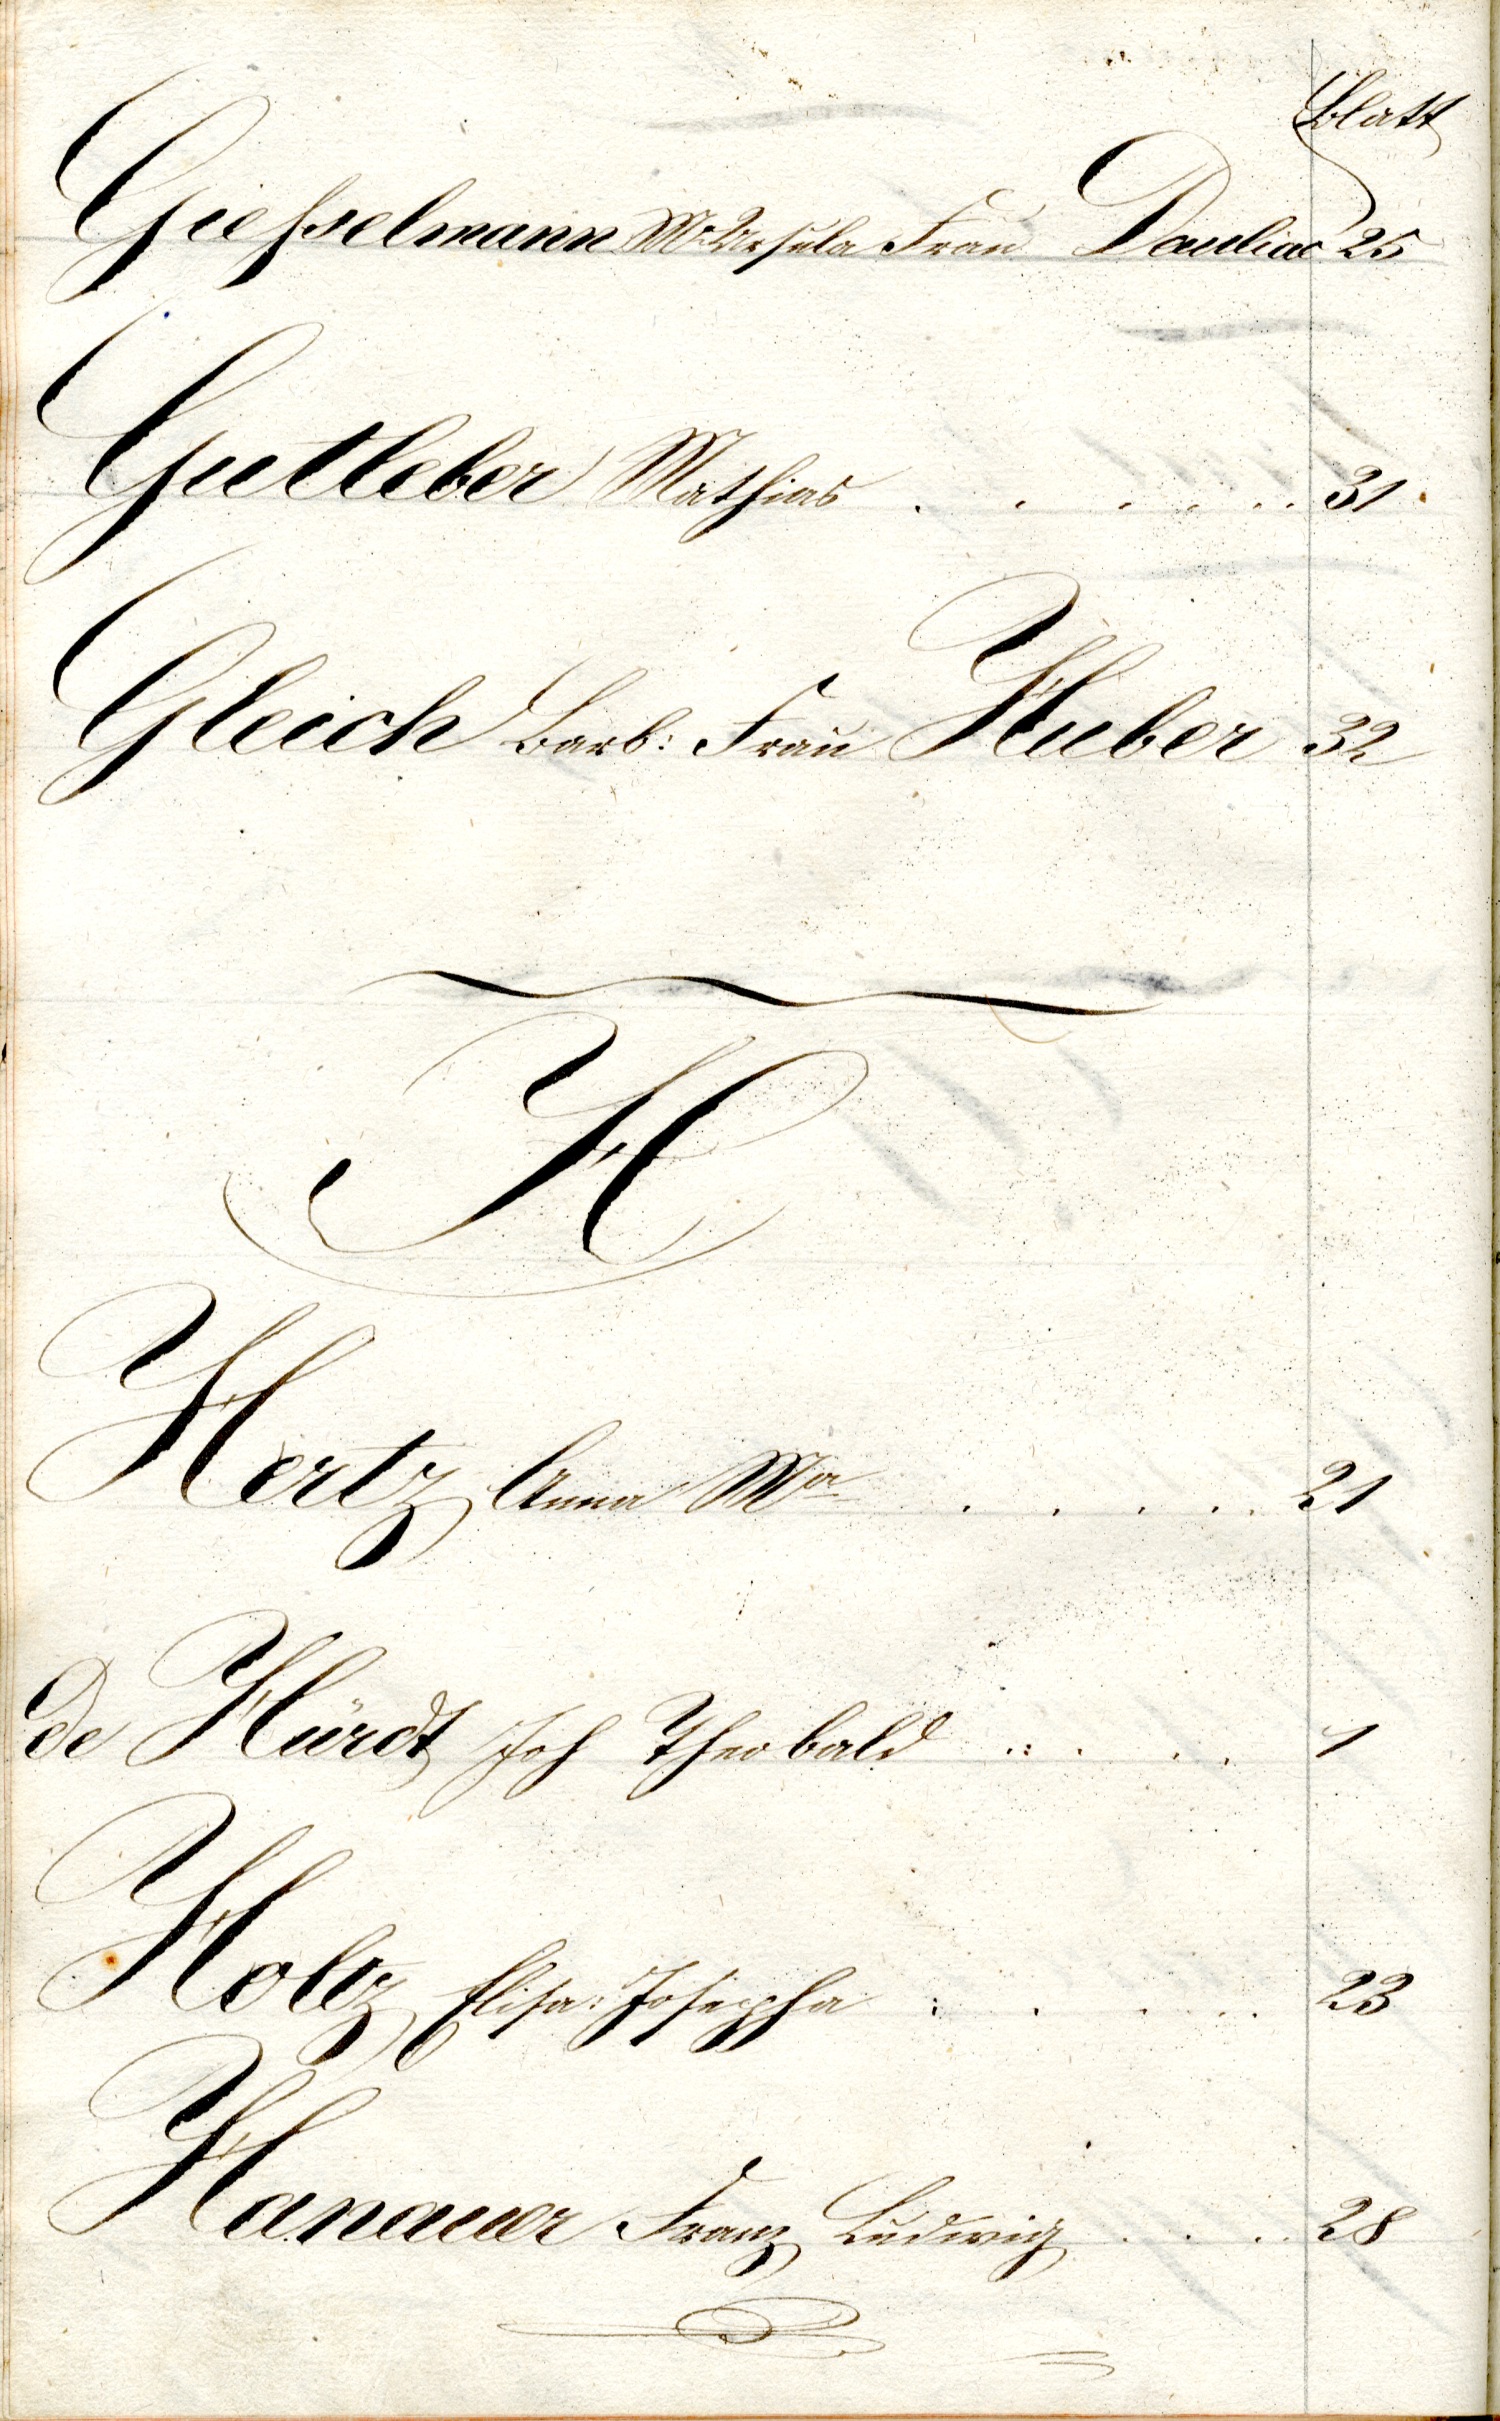 Blatt
Giesselmann Ma Ursula Frau Pauliac 25
Gutleber Mathias . . . . . . 31
Gleich Barb: Frau Huber 32
H
Hertz Anna Ma . . . . . 21
De Hürdt Joh Theobald .: . . . 1
Holtz Elisa: Josepha : . . . . 23
Hanauer Franz Ludwig . . . 28